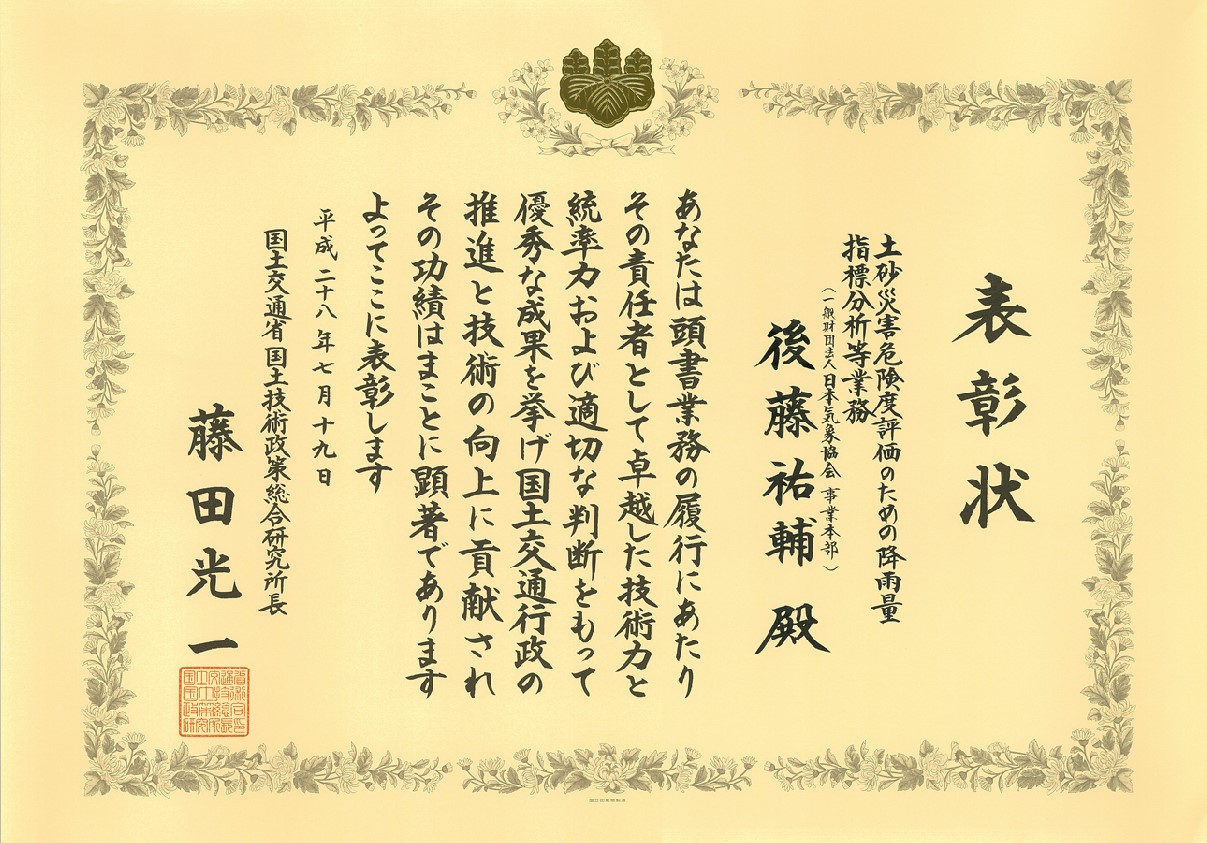 表彰状
土砂災害危険度評価のための降雨量
指標分析等業務
(一般財団法人 日本気象協会 事業本部)
後藤祐輔 殿
あなたは頭書業務の履行にあたり
その責任者として卓越した技術力と
統率力および適切な判断をもって
優秀な成果を挙げ国土交通行政の
推進と技術の向上に貢献され
その功績はまことに顕著であります
よってここに表彰します
平成二十八年七月十九日
国土交通省国土技術政策総合研究所長
藤田光一